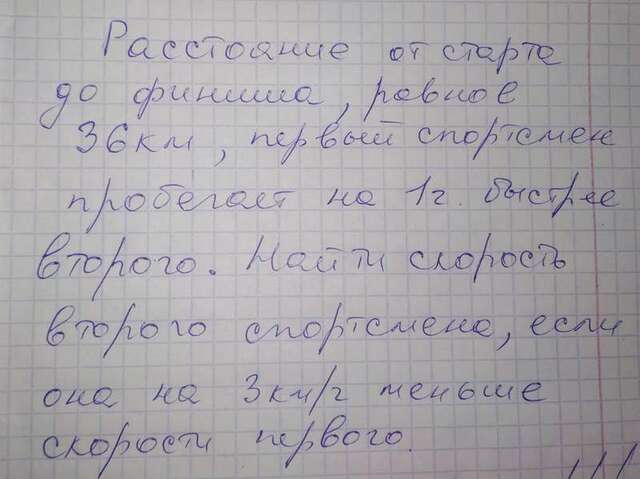 Расстояние от старта
до финиша, равное
36км, первый спортсмен
пробегает на 1г. быстрее
второго. Найти скорость
второго спортсмена, если
она на 3км/г меньше
скорости первого.